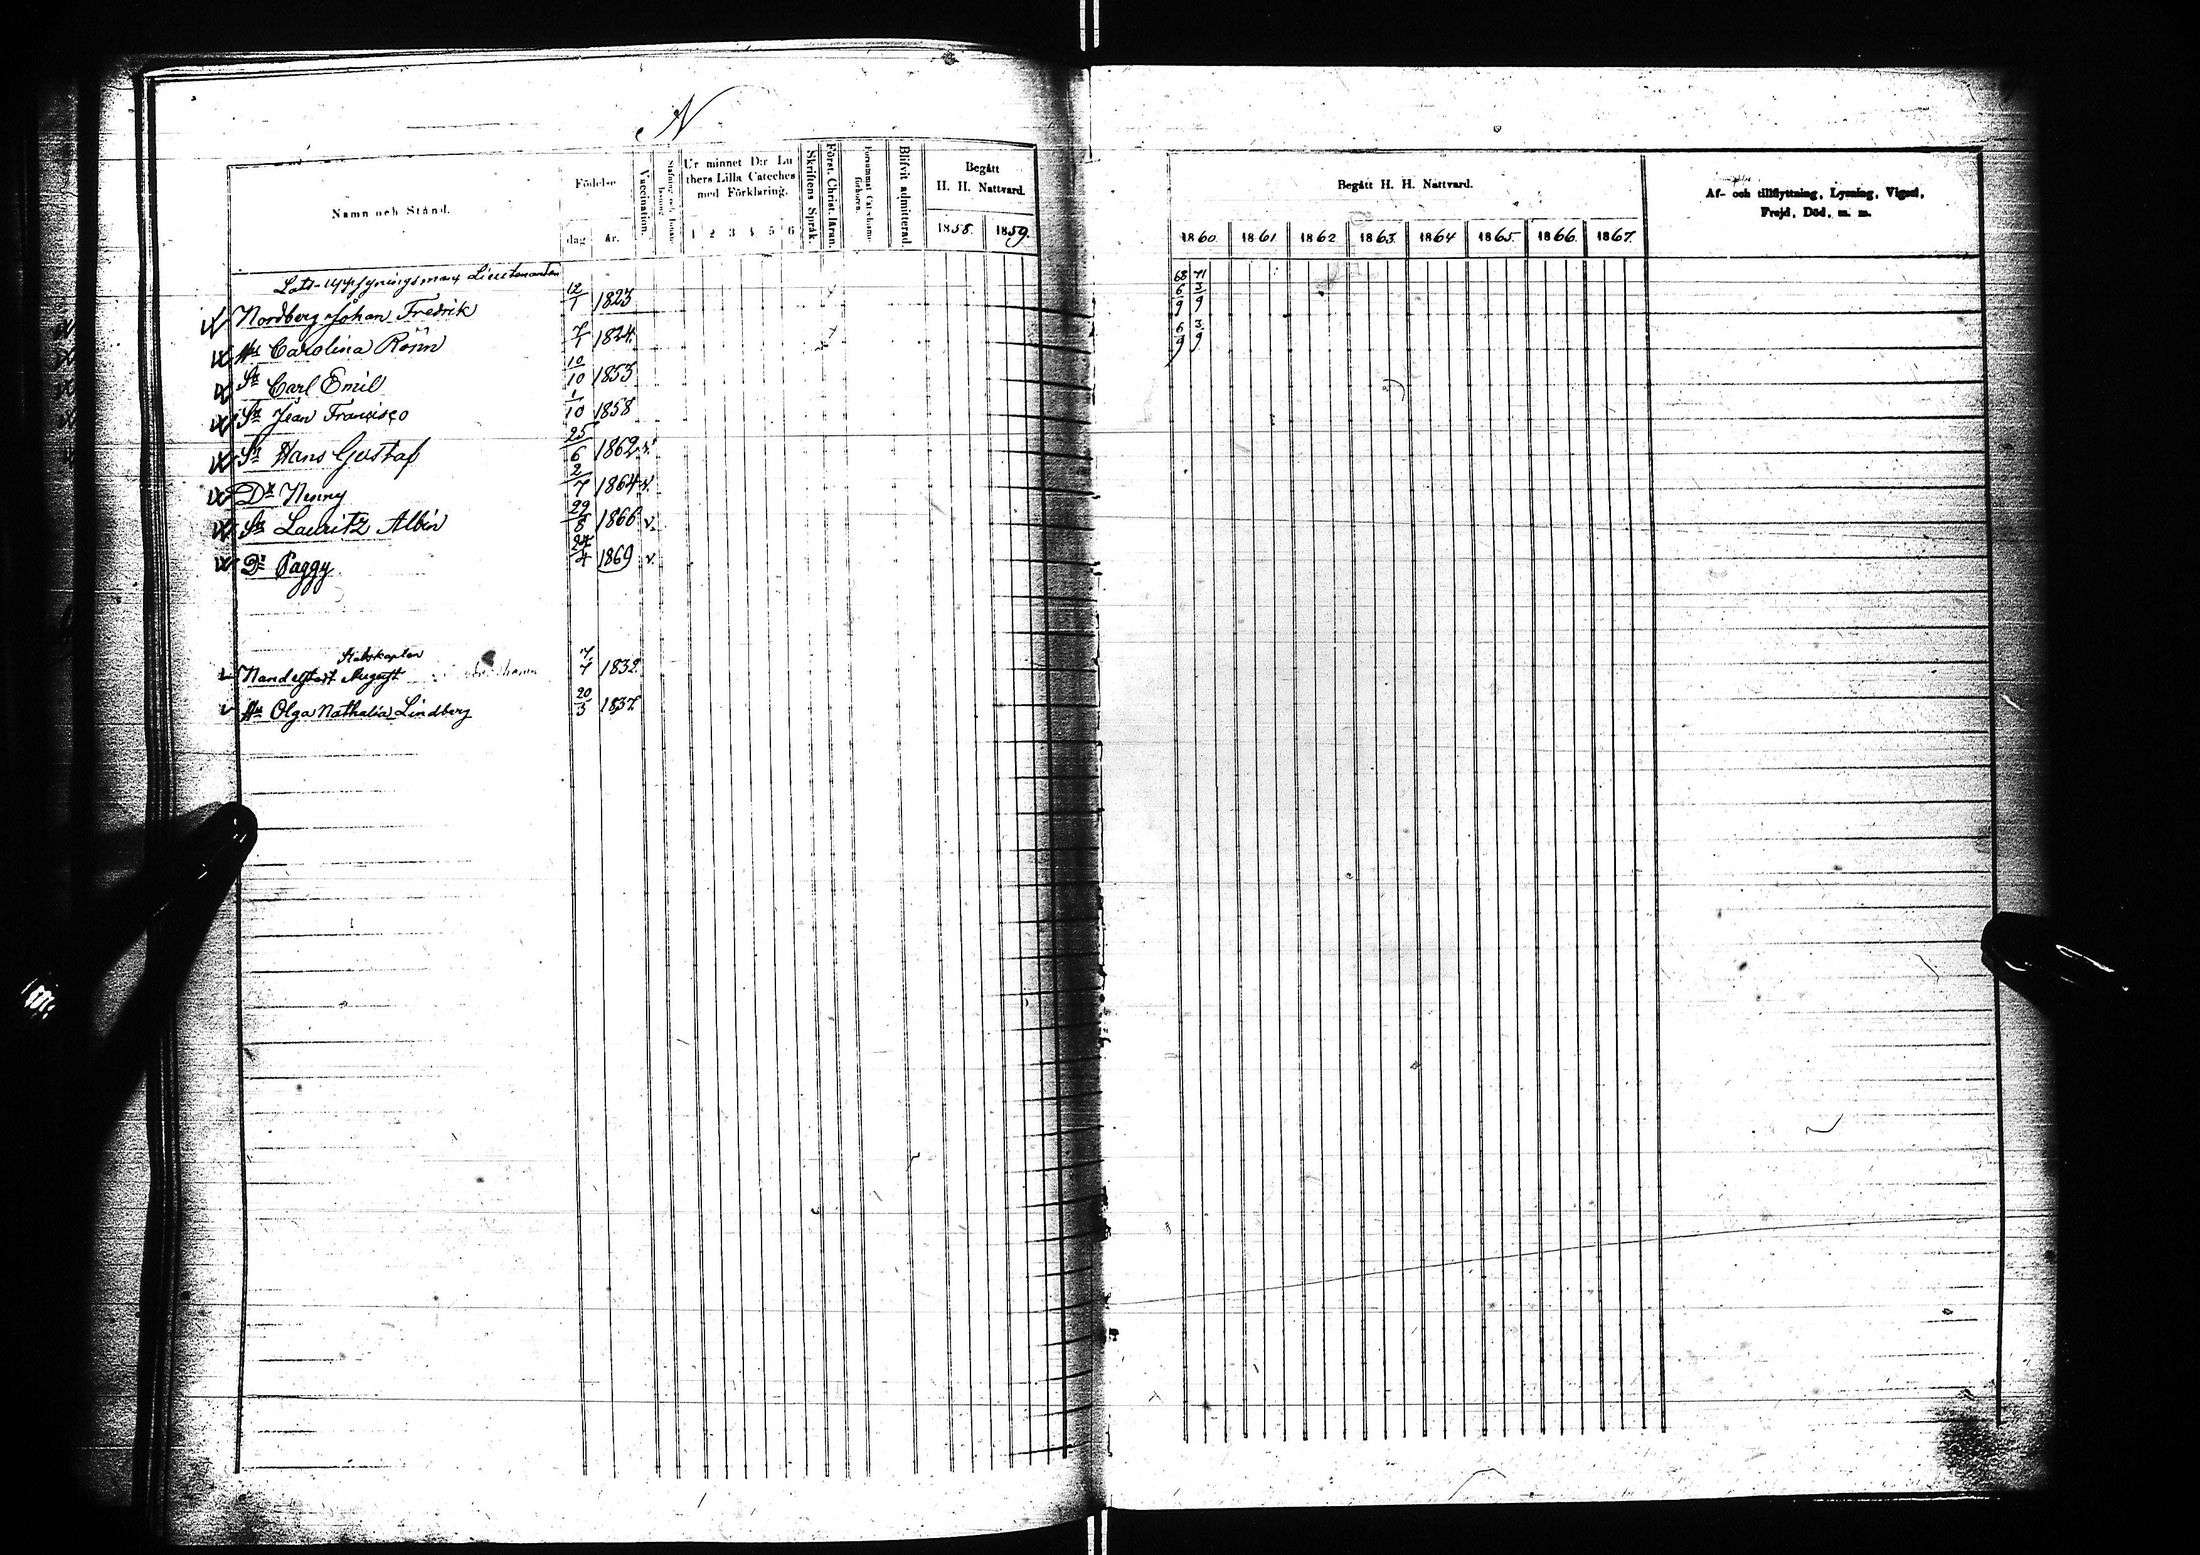 N
Namn och Stånd.
Födelse
dag
år.
Vaccination.
Ur minnet D:r Lu
thers Lilla Cateches
med Förklaring.
1 2 3 4 5 6
Skriftens Språk.
Först. Christ. läran.
Blifvit admitterad.
Begått
H. H. Nattvard.
1858. 1859.
Begått H. H. Nattvard.
1860. 1861. 1862. 1863. 1864. 1865. 1866. 1867.
Af- och tillflyttning, Lysning, Vigsel,
Frejd, Död, m. m.
Lieutenanten
Nordberg Johan Fredrik 12/1 1823
Hu Carolina Rönn 7/1 1824.
Sn Carl Emil 10/10 1853
Sn Jean Francisco 1/10 1858
Sn Hans Gustaf 25/6 1862 v.
Dr Nenny 2/7 1864 v.
Sn Lauritz Albin 29/8 1866 v.
Dr Paggy 24/4 1869 v.
68 71
6/9 3/9
6/9 3/9
Stabskapten
August 7/7 1832.
Hu Olga Nathalia Lindberg 20/3 1837.